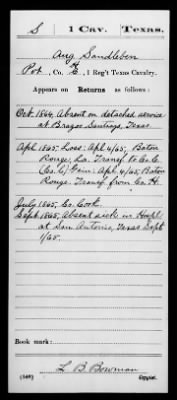 S 1 Cav. Texas.
Aug Sandleben
Pvt., Co. H, 1 Reg't Texas Cavalry.
Appears on Returns as follows:
Oct. 1864, Absent on detached service
at Brazos Santiago, Texas
Apl. 1865; Loss: Apl. 4/65, Baton
Rouge, La. Transf to Co. C.
(Co. C) Gain: Apl. 4/65, Baton
Rouge. Transf from Co. H.
July 1865, Co. Cook.
Sept. 1865, Absent sick in Hospl
at San Antonio, Texas Sept
1/65.
Book mark:
L. B. Bowman
(546) Copyist.